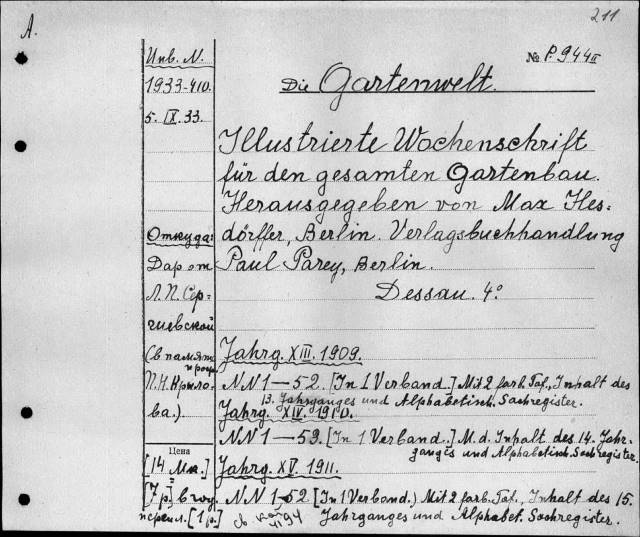 A.
211
Инв. N.
№ P.944 II
1933-410.
Die Gartenwelt.
5. IX. 33.
Illustrierte Wochenschrift
für den gesamten Gartenbau.
Herausgegeben von Max Hes-
dörffer, Berlin. Verlagsbuchhandlung
Paul Parey, Berlin.
Dessau. 4°
Откуда:
Дар от
Л.П. Сер-
гиевской
(В память
П.Н. Крыло-
ва.)
Jahrg. XIII. 1909.
NN 1—52. [In 1 Verband.] Mit 2 farb. Taf., Inhalt des
13. Jahrganges und Alphabetisch. Sachregister.
Jahrg. XIV. 1910.
NN 1—53. [In 1 Verband.] M. d. Inhalt des 14. Jahr-
ganges und Alphabetisch. Sachregister.
Цена
[14 Мк.]
Jahrg. XV. 1911.
[7 р] в год
NN 1-52 [In 1 Verband.) Mit 2 farb. Taf., Inhalt des 15.
Jahrganges und Alphabet. Sachregister.
перепл. [1 р.]